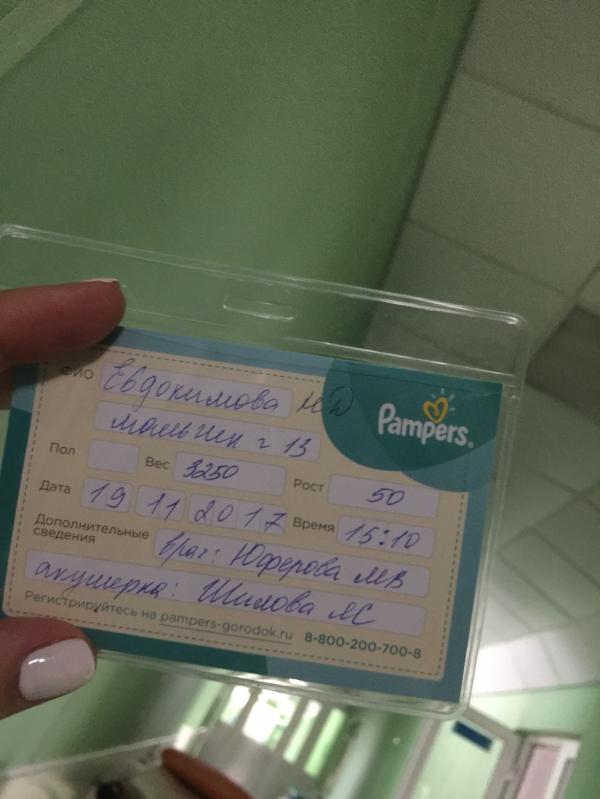 ФИО Евдокимова НД
Pampers.
мальчик г 13
Пол Вес 3250 Рост 50
Дата 19 11 2017 Время 15:10
Дополнительные сведения врач: Юферова МВ
акушерка: Шилова ЯС
Регистрируйтесь на pampers-gorodok.ru 8-800-200-700-8